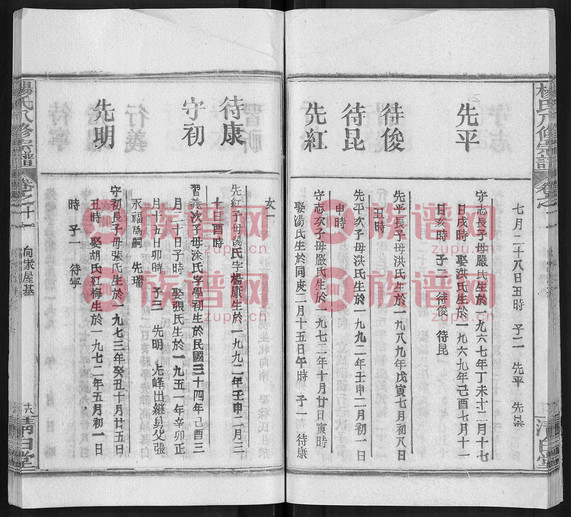 楊氏八修宗譜
卷之十一
清白堂
七月二十八日丑時 子二 先平 先紅
先平
守志長子母嚴氏生於一九六七年丁未十二月十七
日亥時 娶洪氏生於一九六九年己酉七月十一
日亥時 子二 待俊 待昆
待俊
先平長子母洪氏生於一九八九年 七月初八日
丑時
待昆
先平次子母洪氏生於一九九二年壬申二月二日
申時
先紅
守志次子母嚴氏生於一九七二年十月廿日寅時
娶湯氏生於同庚二月十五日午時 子一 待康
女一
待康
先紅子母湯氏字 生於一九九二年壬申二月三
十一酉時
守初
習 次子母涂氏字學初生於民國三十四年己酉三
月二十日子時 娶張氏生於一九五一年辛卯正
月十五日卯時 子三 先明 先峰出繼舅父張
永福為嗣 先瑞
先明
守初長子母張氏生於一九七三年癸丑十月廿五日
丑時 娶胡氏紅梅生於一九七二年五月初一日
時 子一 待寧
楊氏八修宗譜
卷之十一
向家屋基
十八
清白堂
族谱网
zupu.cn